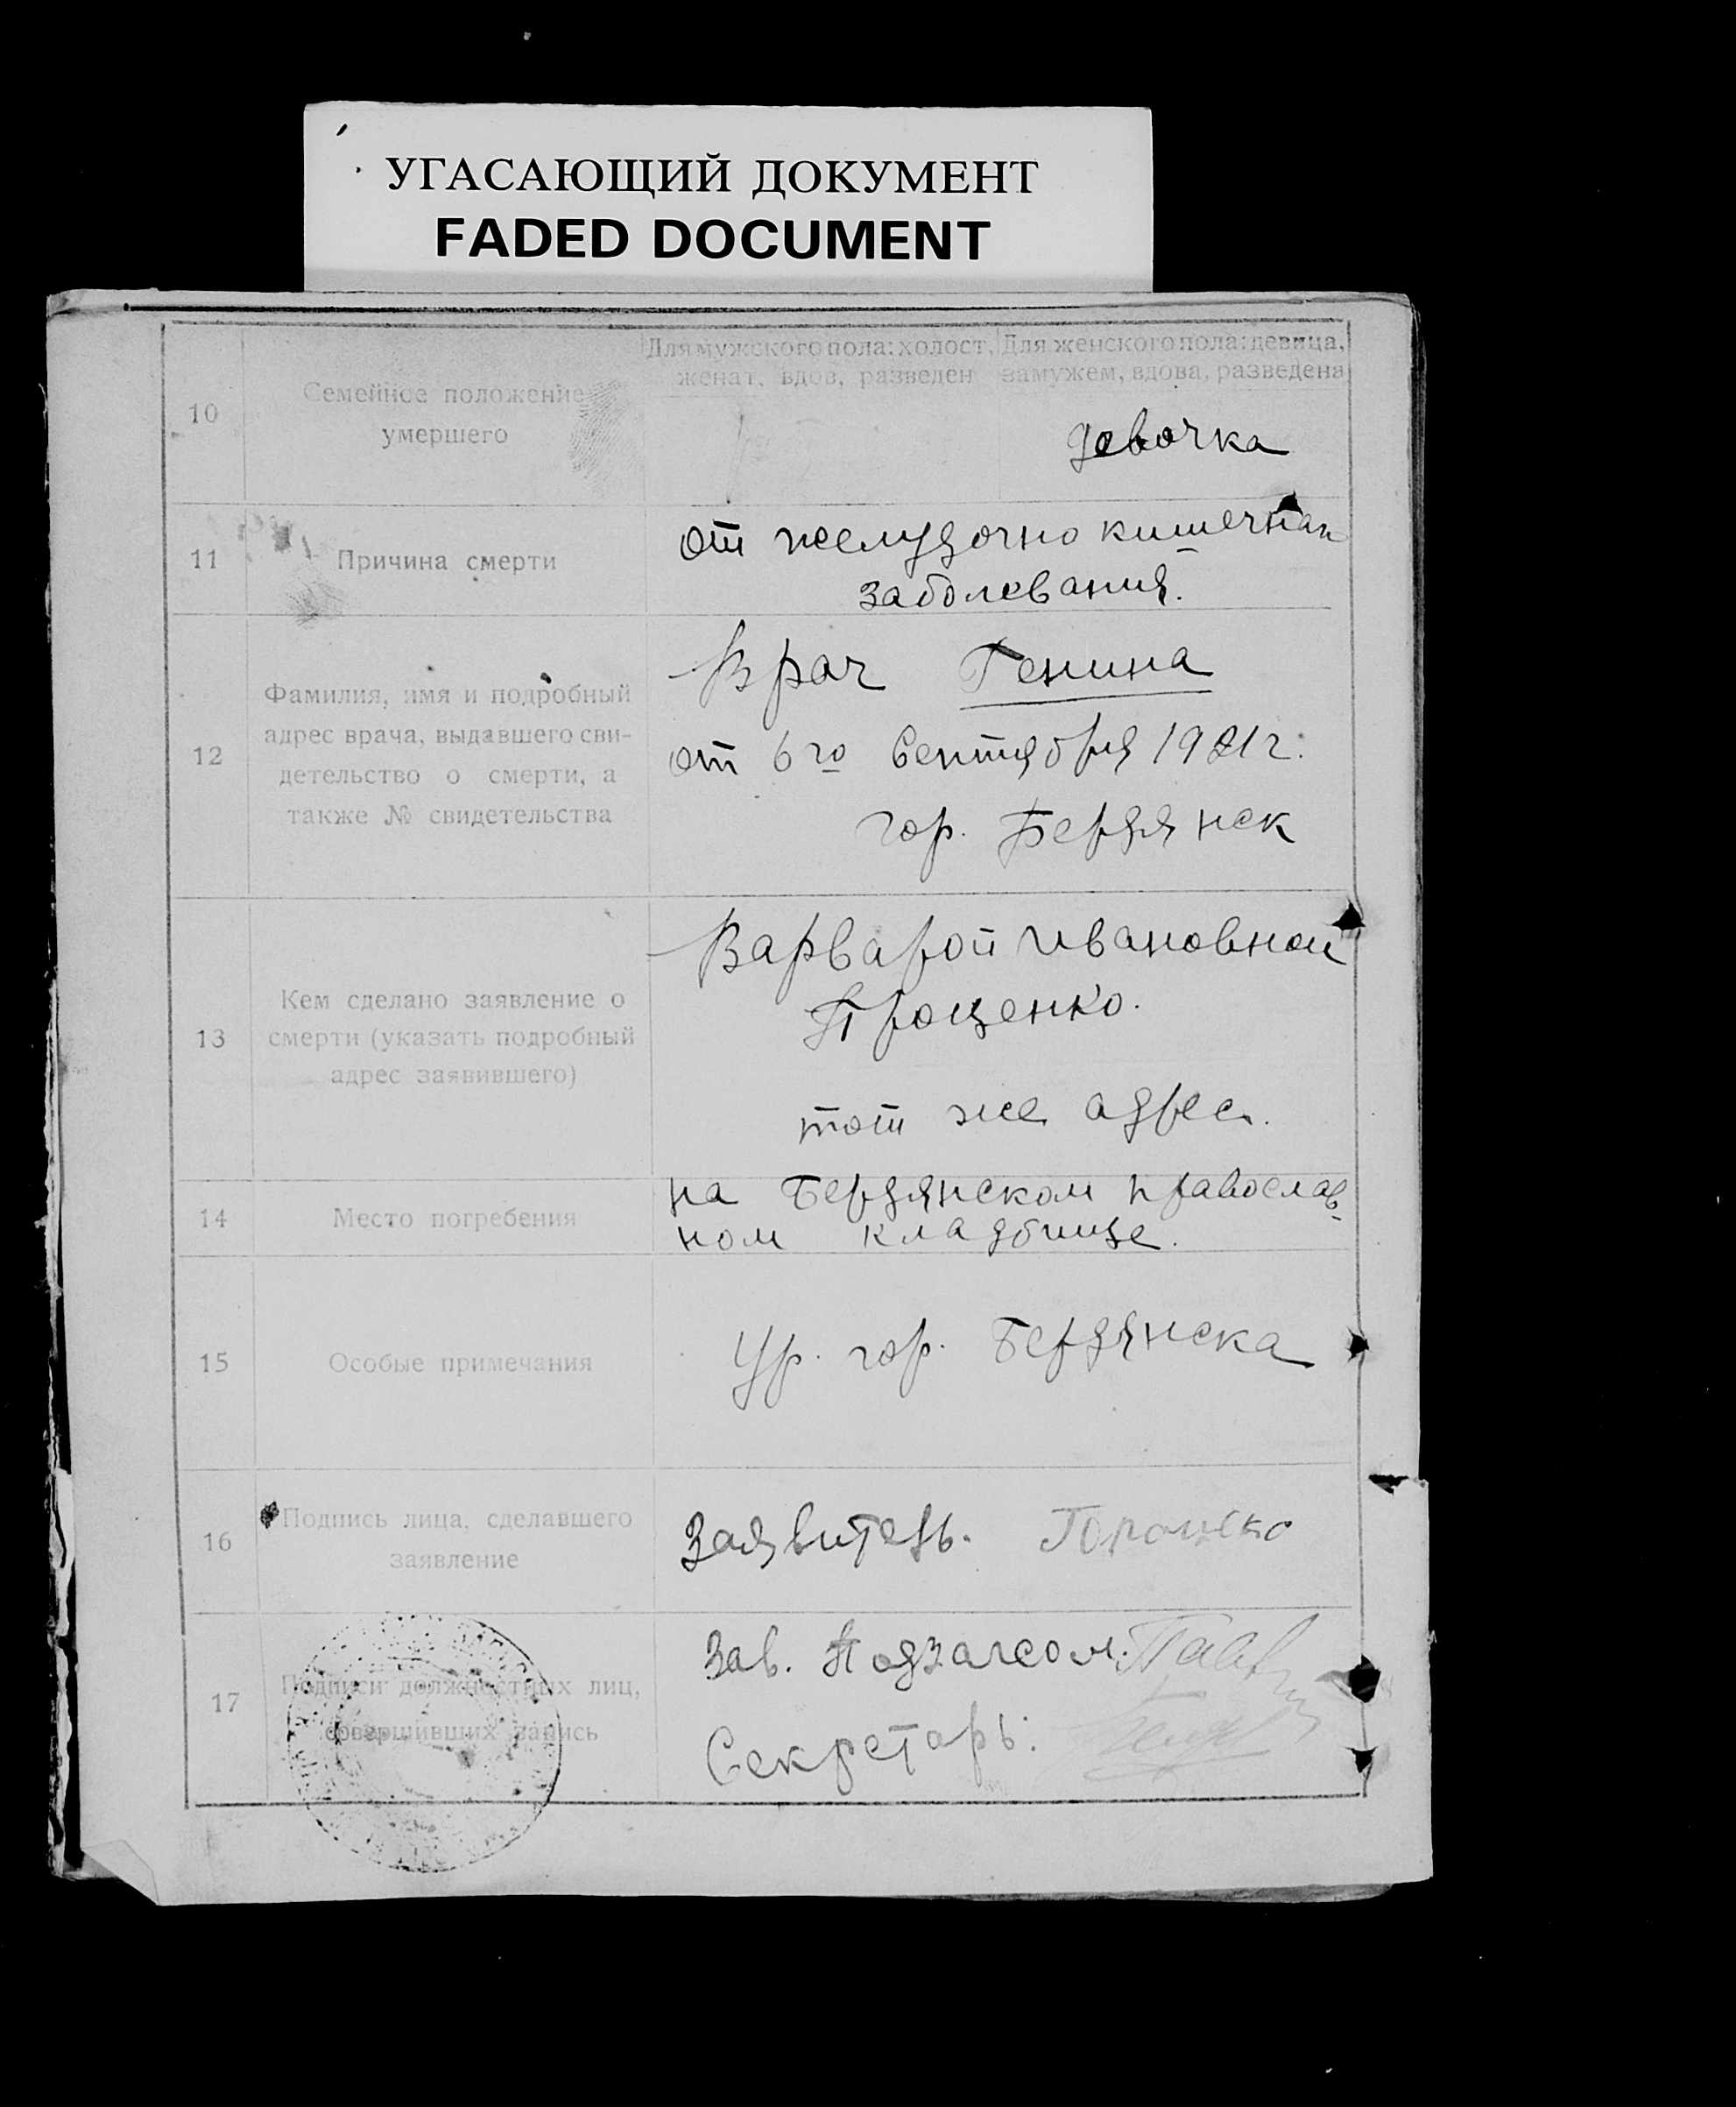 УГАСАЮЩИЙ ДОКУМЕНТ
FADED DOCUMENT
10
Семейное положение
умершего
Для мужского пола: холост,
женат, вдов, разведен
Для женского пола: девица,
замужем, вдова, разведена
девочка
11
Причина смерти
от желудочно кишечнаг
заболевания.
12
Фамилия, имя и подробный
адрес врача, выдавшего сви-
детельство о смерти, а
также № свидетельства
Врач Генина
от 6го Сентября 1921 г.
гор. Бердянск
13
Кем сделано заявление о
смерти (указать подробный
адрес заявившего)
Варварой Ивановной
Проценко.
тот же адрес.
14
Место погребения
на Бердянском православ-
ном кладбище.
15
Особые примечания
Ур. гор. Бердянска
16
Подпись лица, сделавшего
заявление
Заявитель.
17
Подписи должностных лиц,
совершивших запись
Зав. Подзагсом.
Секретарь: